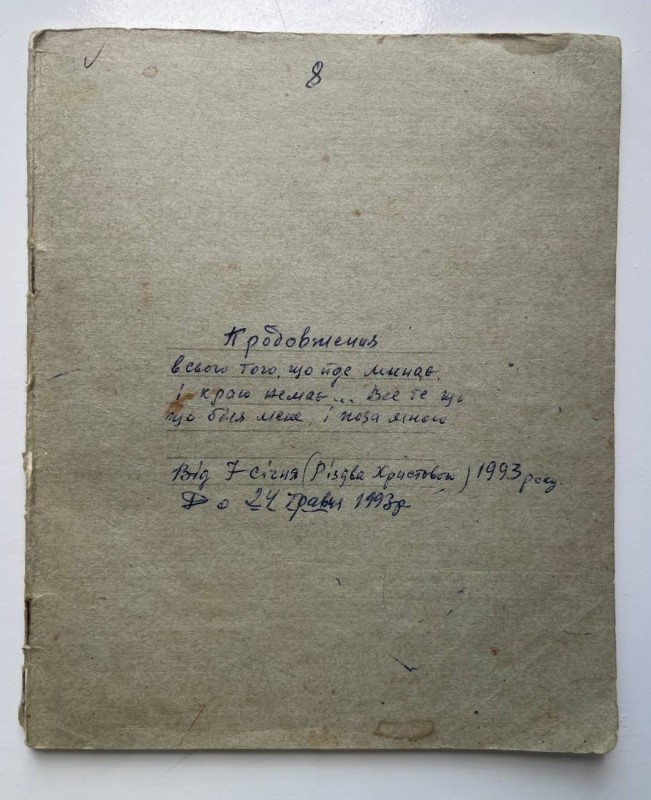 8
Продовження
всього того, що йде минає,
і краю немає... Все те що
що біля мене, і поза мною
Від 7 січня (Різдва Христового) 1993 року.
До 24 травня 1993р